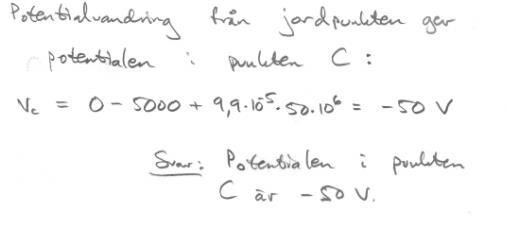 Potentialvandring från jordpunkten ger
potentialen i punkten C :
V_c = 0 - 5000 + 9,9·10^-5·50·10^6 = -50 V
Svar: Potentialen i punkten
C är -50 V.